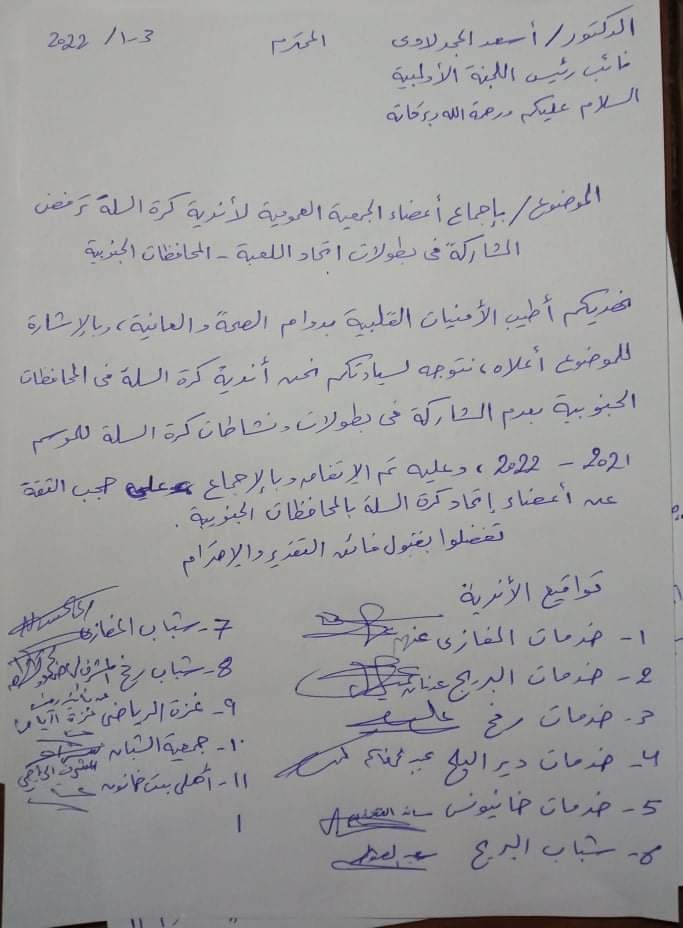 الدكتور/ أسعد المجدلاوى المحترم 2022 /1-3
نائب رئيس اللجنة الأولمبية
السلام عليكم ورحمة الله وبركاته
الموضوع/ بإجماع أعضاء الجمعية العمومية لأندية كرة السلة ترفض
المشاركة فى بطولات اتحاد اللعبة - المحافظات الجنوبية
نهديكم أطيب الأمنيات القلبية بدوام الصحة والعافية، وبالإشارة
للموضوع أعلاه، نتوجه لسيادتكم نحن أندية كرة السلة فى المحافظات
الجنوبية بعدم المشاركة فى بطولات ونشاطات كرة السلة للموسم
2021 - 2022، وعليه تم الإتفاق وبالإجماع على حجب الثقة
عن أعضاء إتحاد كرة السلة بالمحافظات الجنوبية.
تفضلوا بقبول فائق التقدير والإحترام
تواقيع الأندية
1- خدمات المغازى
2- خدمات البريج
3- خدمات رفح
4- خدمات دير البلح
5- خدمات خانيونس
6- شباب البريج
7- شباب المغازى
8- شباب رفح
9- غزة الرياضى
10- جمعية الشبان
11- أهلى بيت حانون
1